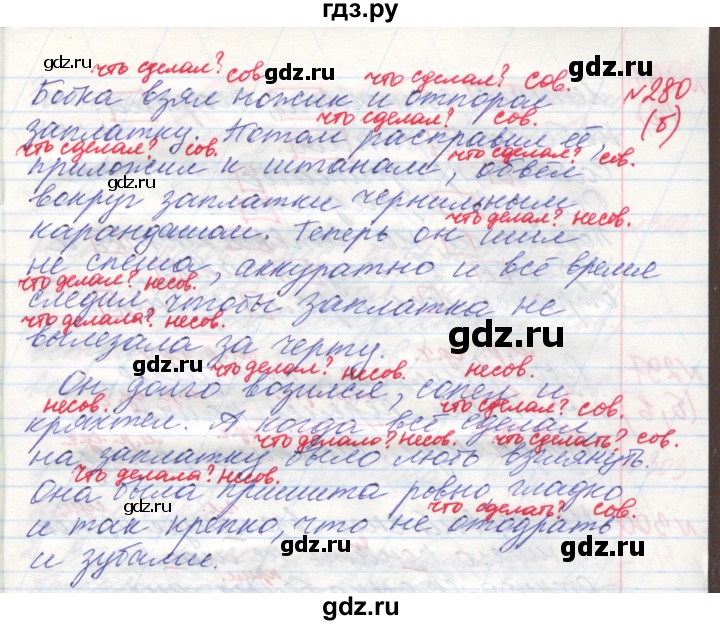 гдз.ру
что сделал? сов. что сделал? сов.
Бобка взял ножик и отпорол №280
что сделал? сов. (б)
заплатку. Потом расправил её,
что сделал? сов. что сделал? сов.
приложил к штанам, обвел
вокруг заплатки чернильным
что делал? несов.
карандашом. Теперь он шил
не спеша, аккуратно и всё время
что делал? несов.
следил чтобы заплатка не
что делала? несов.
вылезала за черту.
что делал? несов. несов.
Он долго возился, сопел и
несов. что сделал? сов.
кряхтел. А когда всё сделал
что делало? несов. что сделать? сов.
на заплатку было любо взглянуть.
что делала? несов.
Она была пришита ровно, гладко
что сделать? сов.
и так крепко, что не отодрать
и зубами.
gdz.ru
gdz.ru
gdz.ru
gdz.ru
gdz.ru
gdz.ru
gdz.ru
gdz.ru
gdz.ru
gdz.ru
gdz.ru
gdz.ru
gdz.ru
gdz.ru